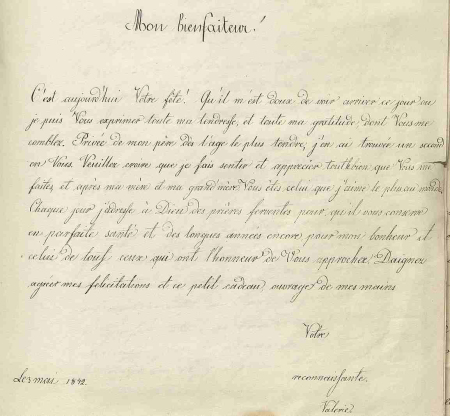 Mon bienfaiteur!
C'est aujourd'hui Votre fête! Qu'il m'est doux de voir arriver ce jour ou
je puis Vous exprimer toute ma tendresse, et toute ma gratitude dont Vous me
comblez. Privée de mon père dès l'age le plus tendre, j'en ai trouvée un second
en Vous. Veuillez croire que je sais sentir et apprecier tout bien que Vous me
faites, et après ma mère et ma grand mère Vous êtes celui que j'aime le plus au monde.
Chaque jour j'adresse à Dieu des prières ferventes pour qu'il vous conserve
en parfaite santé et des longues années encore pour mon bonheur et
celui de tous ceux qui ont l'honneur de Vous approcher. Daignez
agréer mes felicitations et ce petit cadeau ouvrage de mes mains
Votre
reconnaissante
Le 3 mai 1842.
Valerie